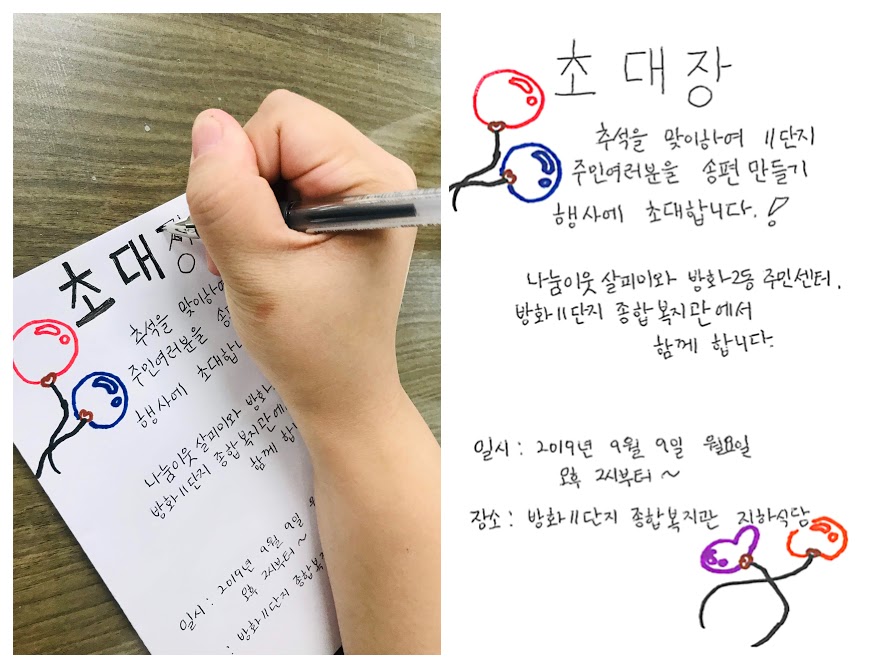 초대장
추석을 맞이하여
주민여러분을 송편
행사에 초대합니
나눔이웃 살피미와 방화
방화11단지 종합복지관에
함께 합
일시 : 2019년 9월 9일
오후 2시부터 ~
: 방화11단지 종합복지
초대장
추석을 맞이하여 11단지
주민여러분을 송편 만들기
행사에 초대합니다.!
나눔이웃 살피미와 방화2동 주민센터,
방화11단지 종합복지관에서
함께 합니다.
일시 : 2019년 9월 9일 월요일
오후 2시부터 ~
장소 : 방화11단지 종합복지관 지하식당